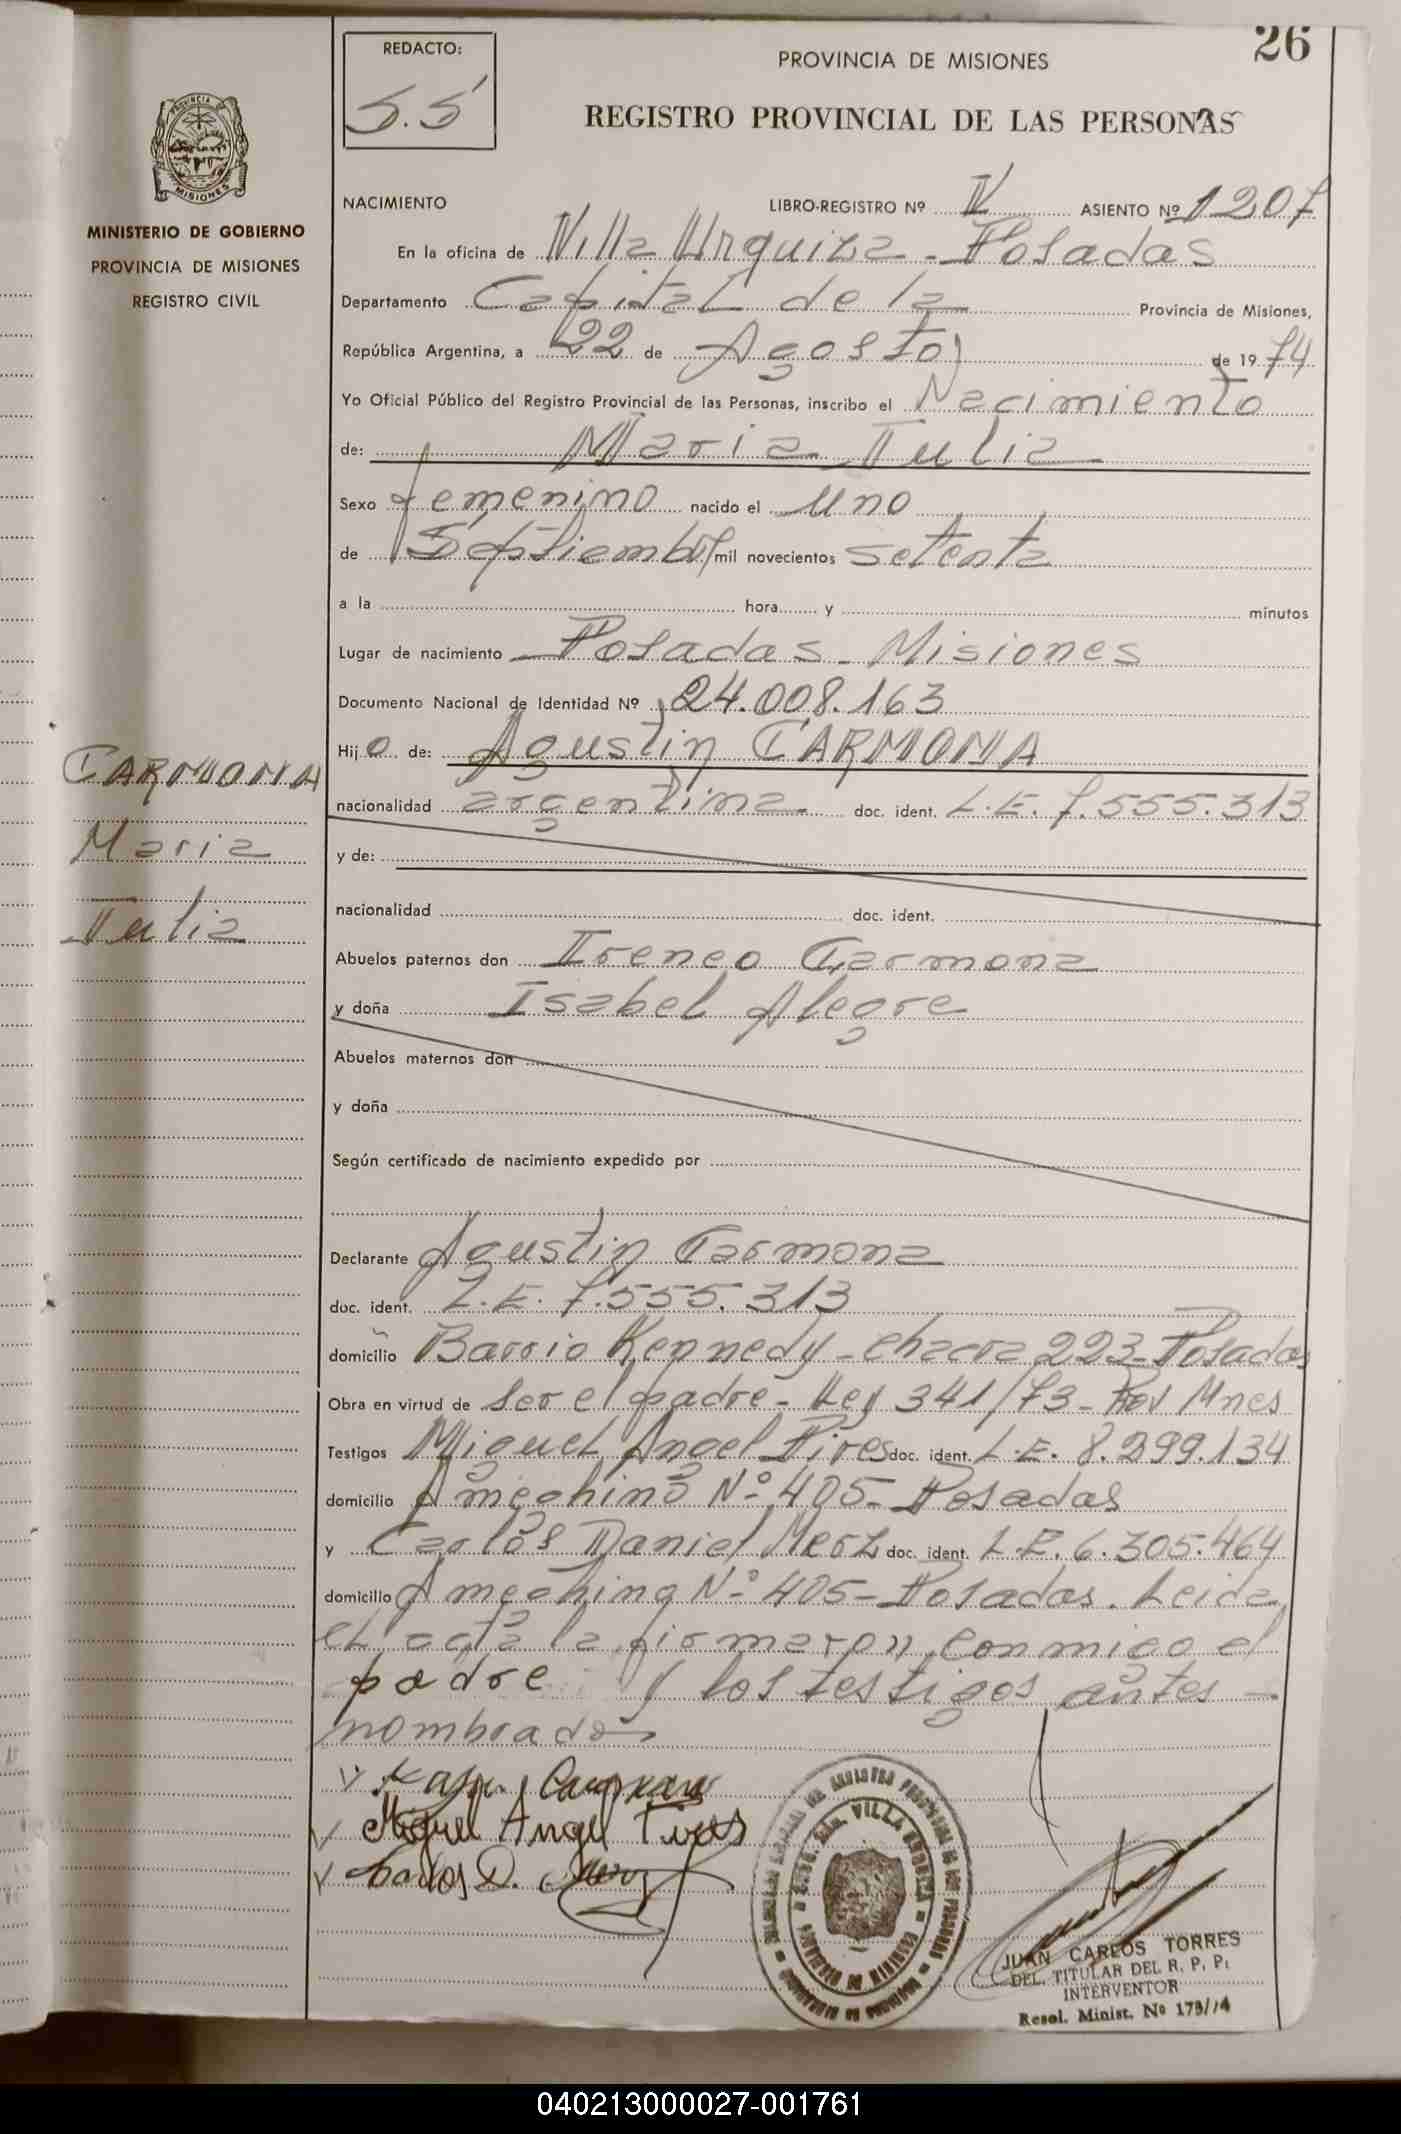 26
REDACTO:
S.S
PROVINCIA DE MISIONES
REGISTRO PROVINCIAL DE LAS PERSONAS
PROVINCIA
MISIONES
MINISTERIO DE GOBIERNO
PROVINCIA DE MISIONES
REGISTRO CIVIL
NACIMIENTO LIBRO-REGISTRO Nº IV ASIENTO Nº 1207
En la oficina de Villa Urquiza - Posadas
Departamento Capital de la Provincia de Misiones,
República Argentina, a 22 de Agosto de 1974
Yo Oficial Público del Registro Provincial de las Personas, inscribo el Nacimiento
de: Maria Julia
Sexo femenino nacido el uno
de Septiembre mil novecientos setenta
a la hora y minutos
Lugar de nacimiento Posadas - Misiones
Documento Nacional de Identidad Nº 24.008.163
Hijo de: Agustin CARMONA
nacionalidad argentina doc. ident. L.E. 7.555.313
CARMONA
Maria
Julia
y de:
nacionalidad doc. ident.
Abuelos paternos don Ireneo Carmona
y doña Isabel Alegre
Abuelos maternos don
y doña
Según certificado de nacimiento expedido por
Declarante Agustin Carmona
doc. ident. L.E. 7.555.313
domicilio Barrio Kennedy - chacra 223 - Posadas
Obra en virtud de ser el padre - Ley 341/73 - Mnes
Testigos Miguel Angel Pires doc. ident. L.E. 8.299.134
domicilio Ameghino Nº 405 - Posadas
y Carlos Daniel Merz doc. ident. L.E. 6.305.464
domicilio Ameghino Nº 405 - Posadas. Leida
el acta la firmaron conmigo el
padre y los testigos antes -
nombrado
Miguel Angel Pires
Carlos D. Merz
VILLA URQUIZA
JUAN CARLOS TORRES
DEL. TITULAR DEL R. P. P.
INTERVENTOR
Resol. Minist. Nº 173/74
040213000027-001761